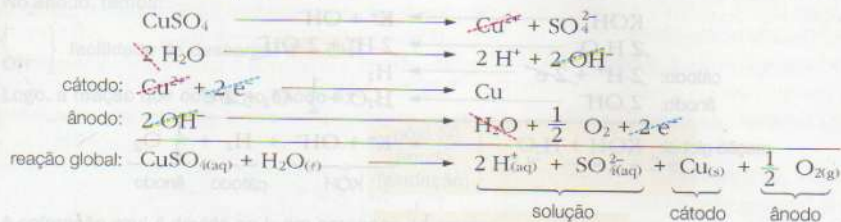 CuSO₄ ⟶ Cu²⁺ + SO₄²⁻
2 H₂O ⟶ 2 H⁺ + 2 OH⁻
cátodo: Cu²⁺ + 2 e⁻ ⟶ Cu
ânodo: 2 OH⁻ ⟶ H₂O + 1/2 O₂ + 2 e⁻
reação global: CuSO₄(aq) + H₂O(ℓ) ⟶ 2 H⁺(aq) + SO₄²⁻(aq) + Cu(s) + 1/2 O₂(g)
solução cátodo ânodo